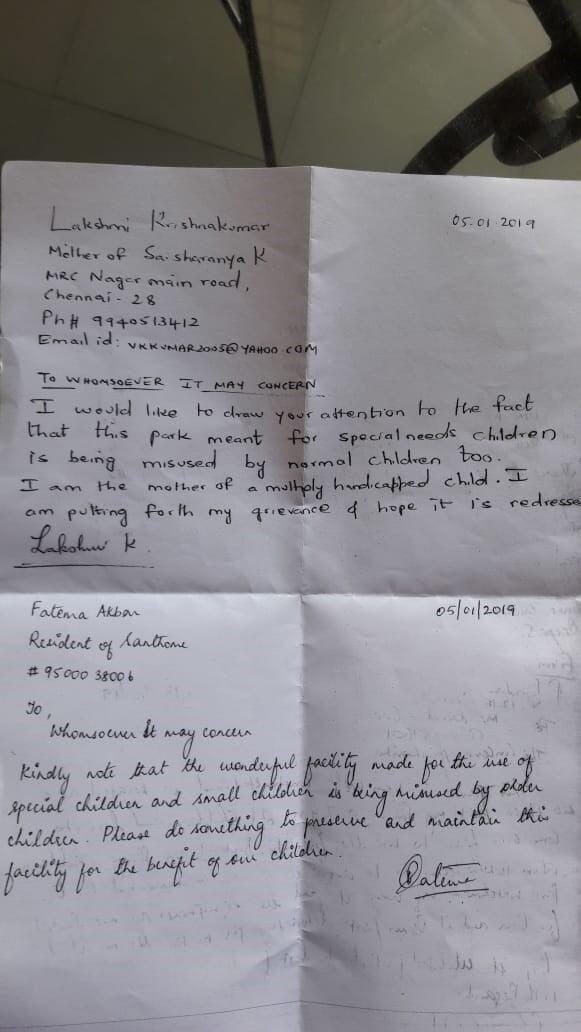 Lakshmi Krishnakumar
05.01.2019
Mother of Saisharanya K
MRC Nagar main road,
Chennai - 28
Ph# 9940513412
Email id: VKKUMAR2005@YAHOO.COM
TO WHOMSOEVER IT MAY CONCERN
I would like to draw your attention to the fact
that this park meant for special needs children
is being misused by normal children too.
I am the mother of a multiply handicapped child. I
am putting forth my grievance & hope it is redresse
Lakshmi K.
Fatema Akbar
05/01/2019
Resident of Santhome
# 95000 38006
To,
Whomsoever It may concern
Kindly note that the wonderful facility made for the use of
special children and small children is being misused by older
children. Please do something to preserve and maintain this
facility for the benefit of our children.